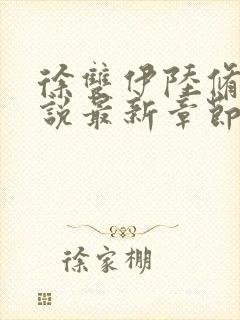 徐雙伊陸脩
說最新章節
徐家棚